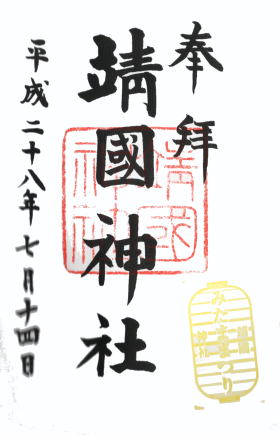 奉拝
靖國神社
平成二十八年七月十四日
靖國
神社
みたままつり
靖國
神社